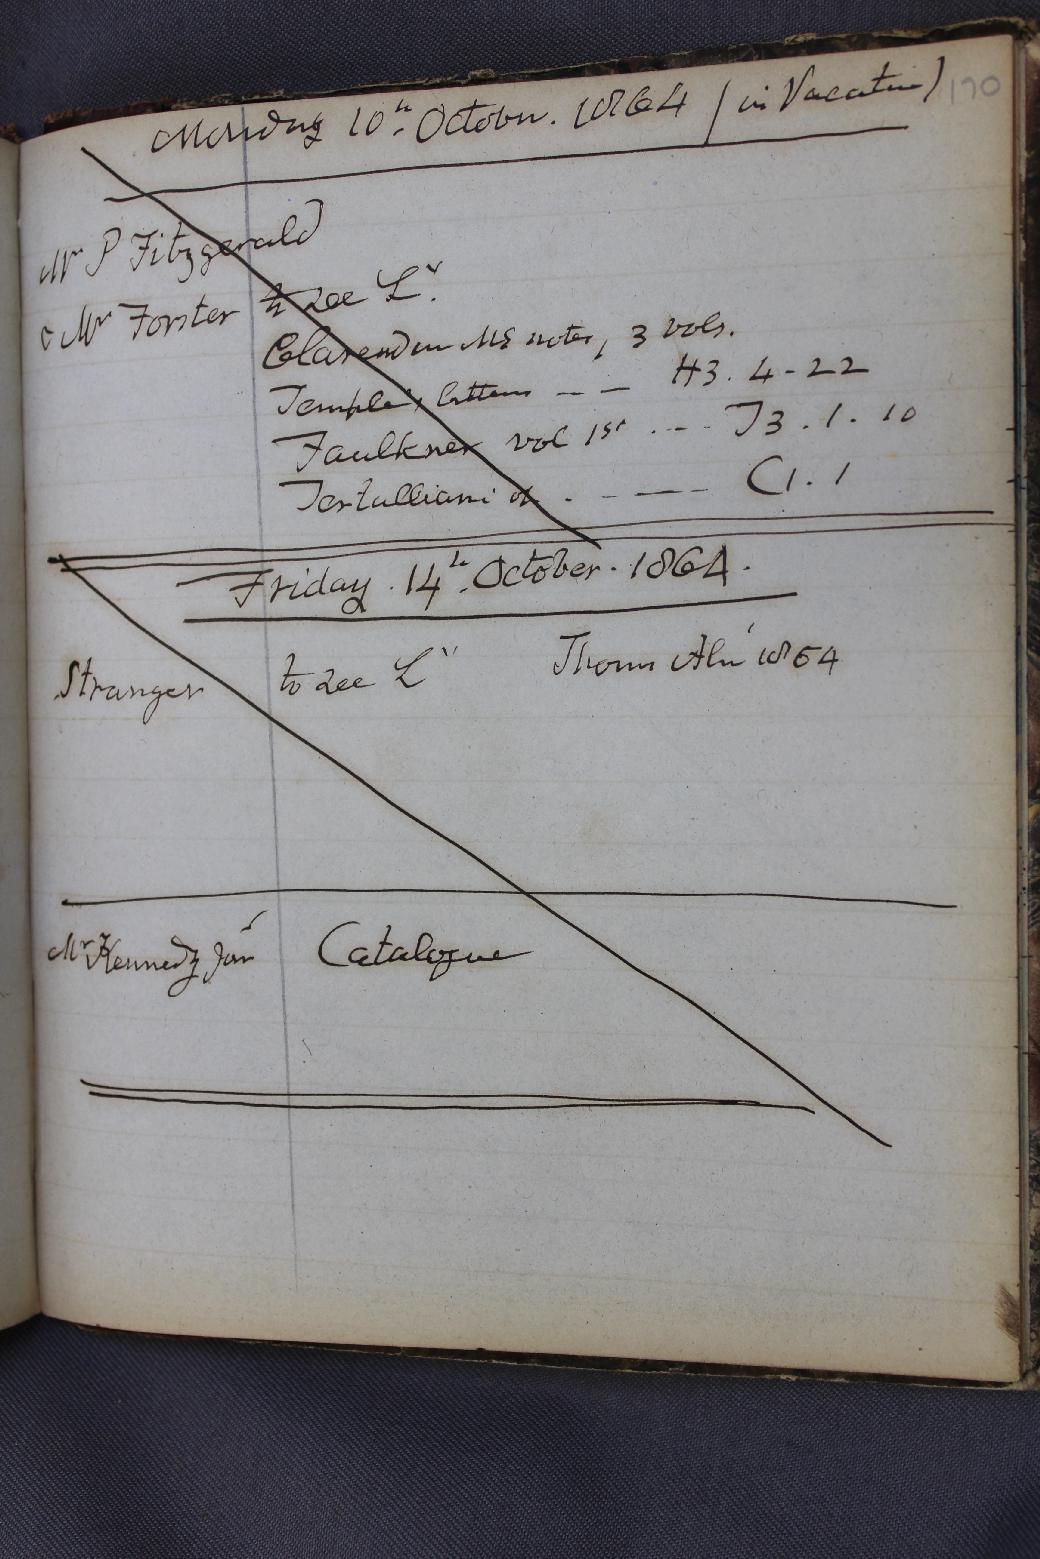 Monday 10th. October. 1864 (in Vacation) 170
Mr P Fitzgerald
& Mr Forster to see Ly.
Clarendon MS notes, 3 vols.
Temple's letters -- H3. 4-22
Faulkner vol 1st --- J3. 1. 10
Tertulliani op. ---- C1. 1
Friday. 14th. October. 1864.
Stranger to see Ly Thoms Alm 1864
Mr Kennedy Junr Catalogue